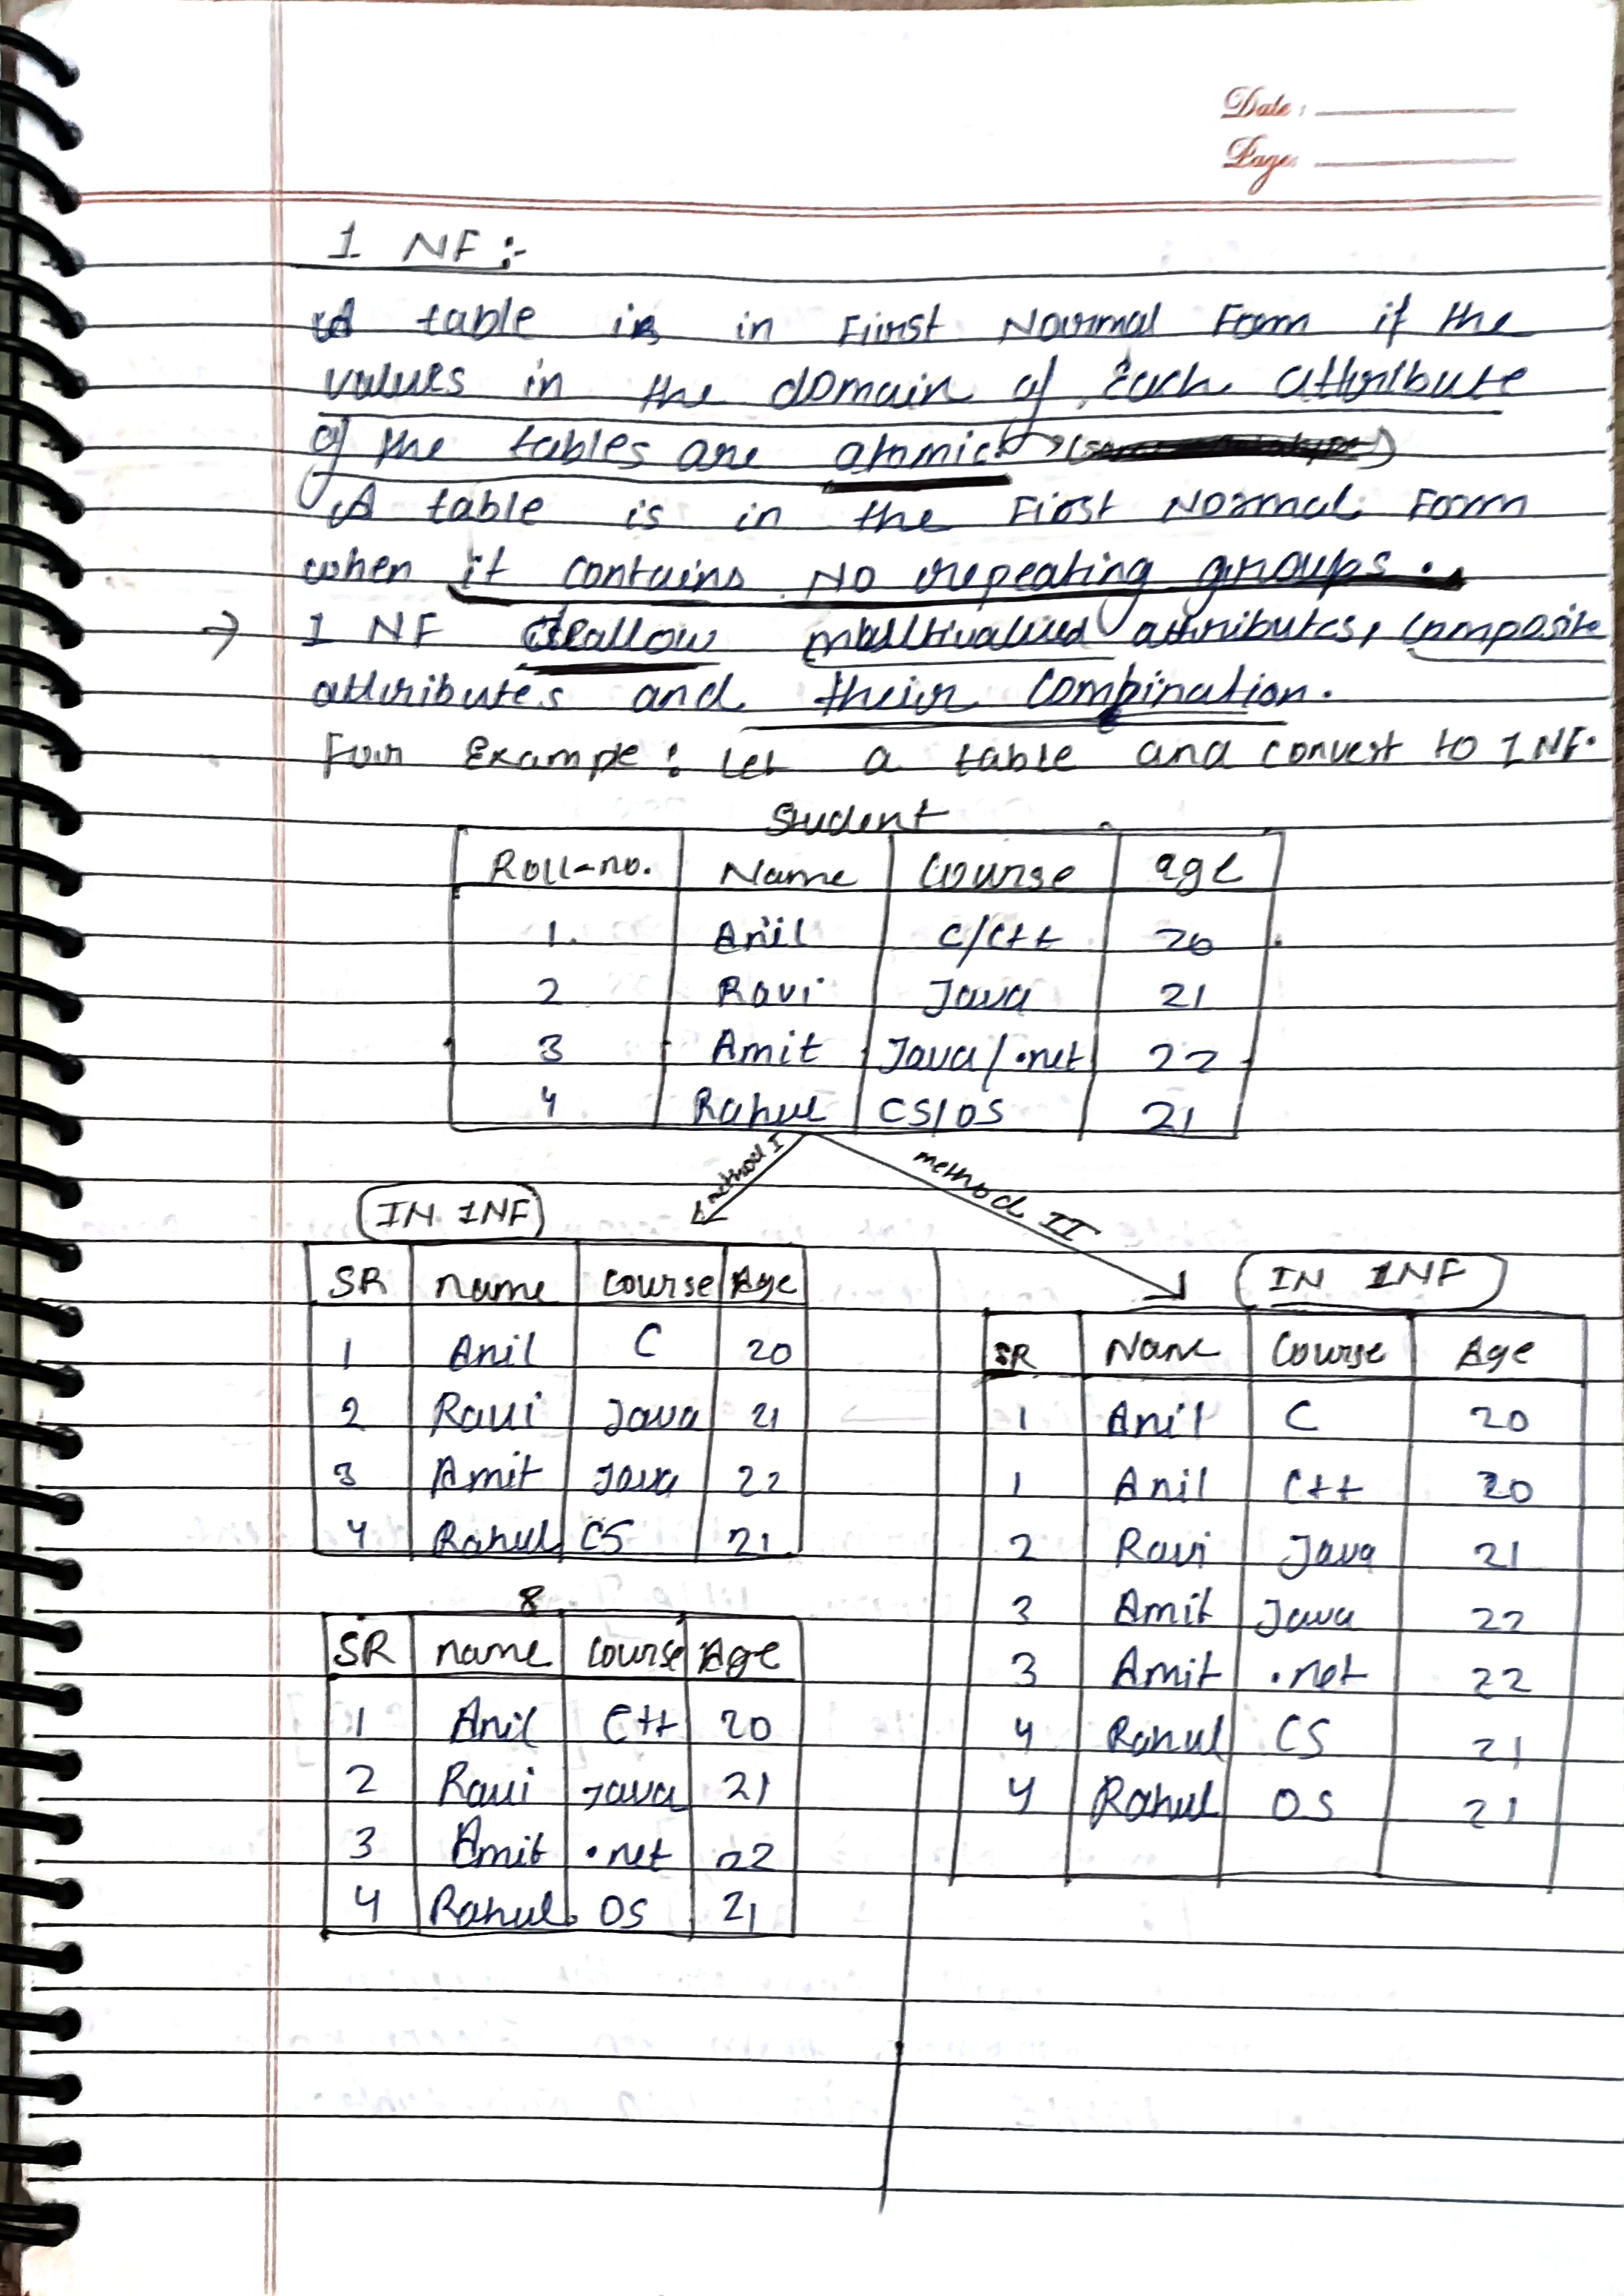 Date :
Page:
1 NF :-
A table is in First Normal Form if the
values in the domain of Each attribute
of the tables are atomic
A table is in the First Normal Form
when it contains No repeating groups.
→ 1 NF disallow multivalued attributes, composite
attributes and their combination.
For Example : Let a table and convert to 1NF.
Student
Roll-no. Name Course age
1. Anil C/C++ 20
2 Ravi Java 21
3 Amit Java/.net 22
4 Rahul CS/OS 21
method I method II
IN 1NF
SR name course Age
1 Anil C 20
2 Ravi Java 21
3 Amit Java 22
4 Rahul CS 21
8
SR name course Age
1 Anil C++ 20
2 Ravi Java 21
3 Amit .net 22
4 Rahul OS 21
IN 1NF
SR Name Course Age
1 Anil C 20
1 Anil C++ 20
2 Ravi Java 21
3 Amit Java 22
3 Amit .net 22
4 Rahul CS 21
4 Rahul OS 21